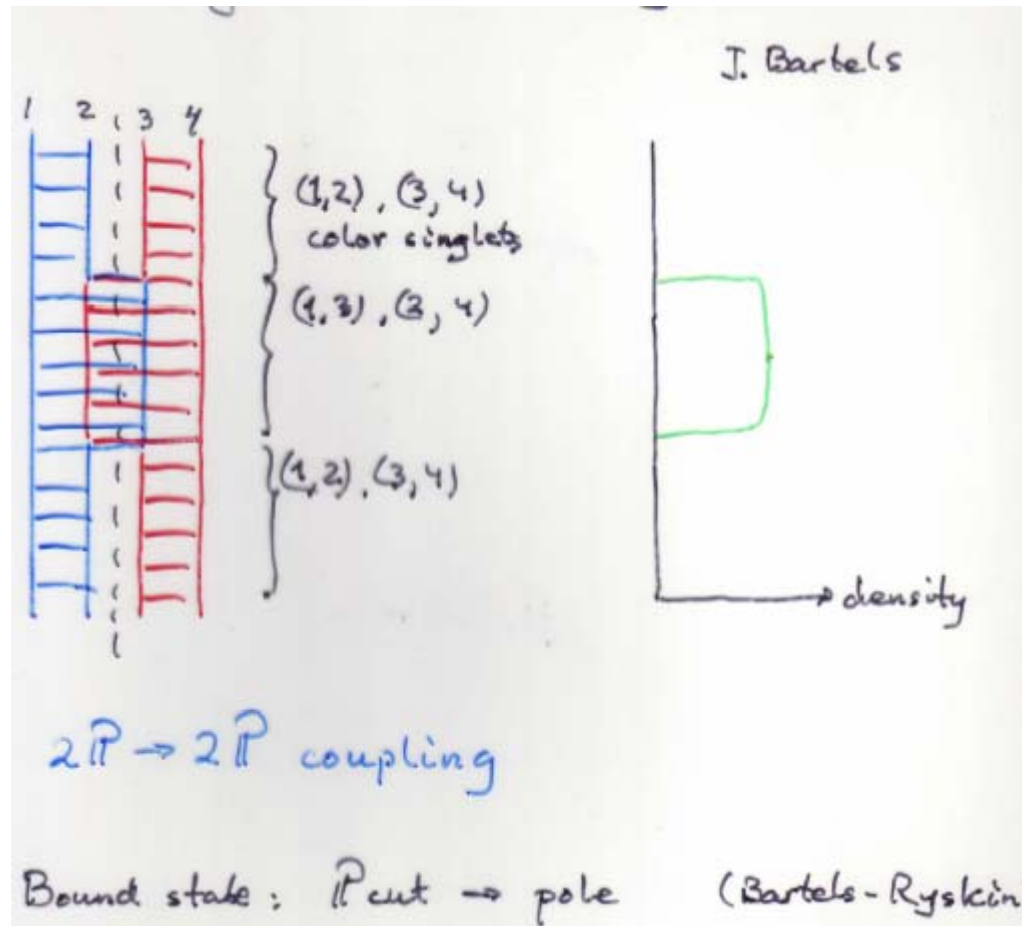 J. Bartels
1 2 3 4
(1,2), (3,4)
color singlets
(1,3), (2,4)
(1,2), (3,4)
density
2ℙ → 2ℙ coupling
Bound state: ℙ cut → pole (Bartels-Ryskin